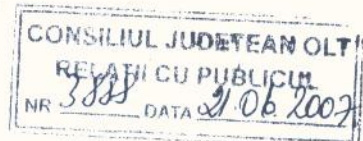 CONSILIUL JUDEŢEAN OLT
RELAŢII CU PUBLICUL
NR 3888 DATA 21.06.2007